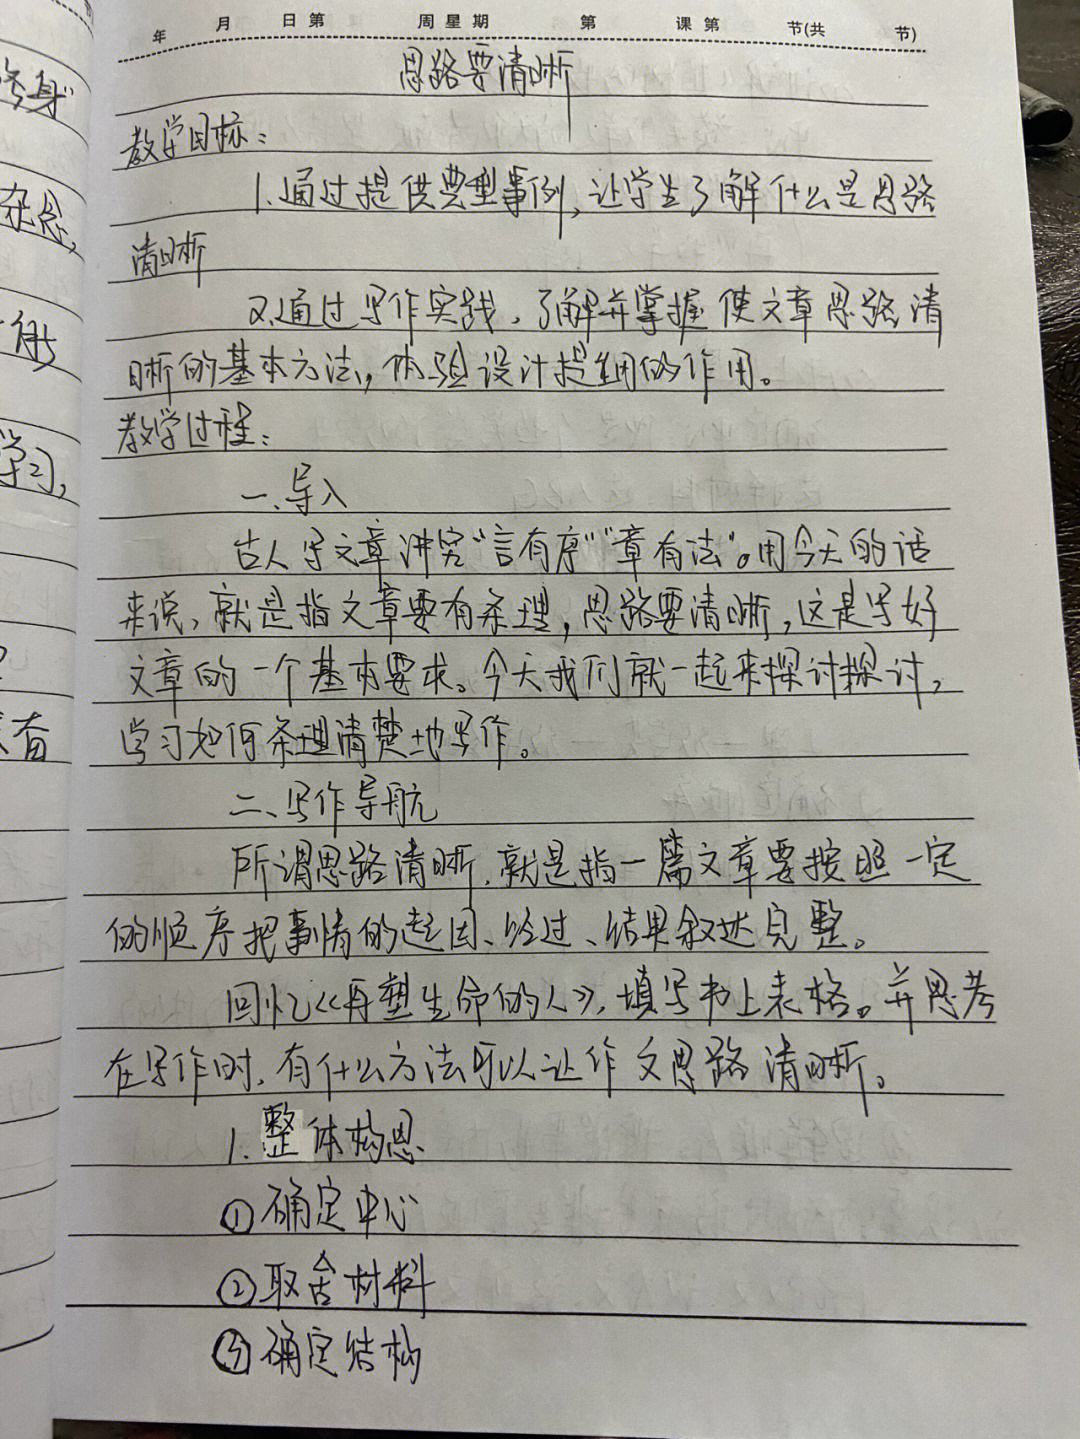 年 月 日 第 周 星 期 第 课 第 节(共 节)
思路要清晰
教学目标：
1.通过提供典型事例，让学生了解什么是思路
清晰
2.通过写作实践，了解并掌握使文章思路清
晰的基本方法，体验设计提纲的作用。
教学过程：
一.导入
古人写文章讲究“言有序”“章有法”。用今天的话
来说，就是指文章要有条理，思路要清晰，这是写好
文章的一个基本要求。今天我们就一起来探讨探讨，
学习如何条理清楚地写作。
二、写作导航
所谓思路清晰，就是指一篇文章要按照一定
的顺序把事情的起因、经过、结果叙述完整。
回忆《再塑生命的人》，填写书上表格。并思考
在写作时，有什么方法可以让作文思路清晰。
1.整体构思
①确定中心
②取舍材料
③确定结构